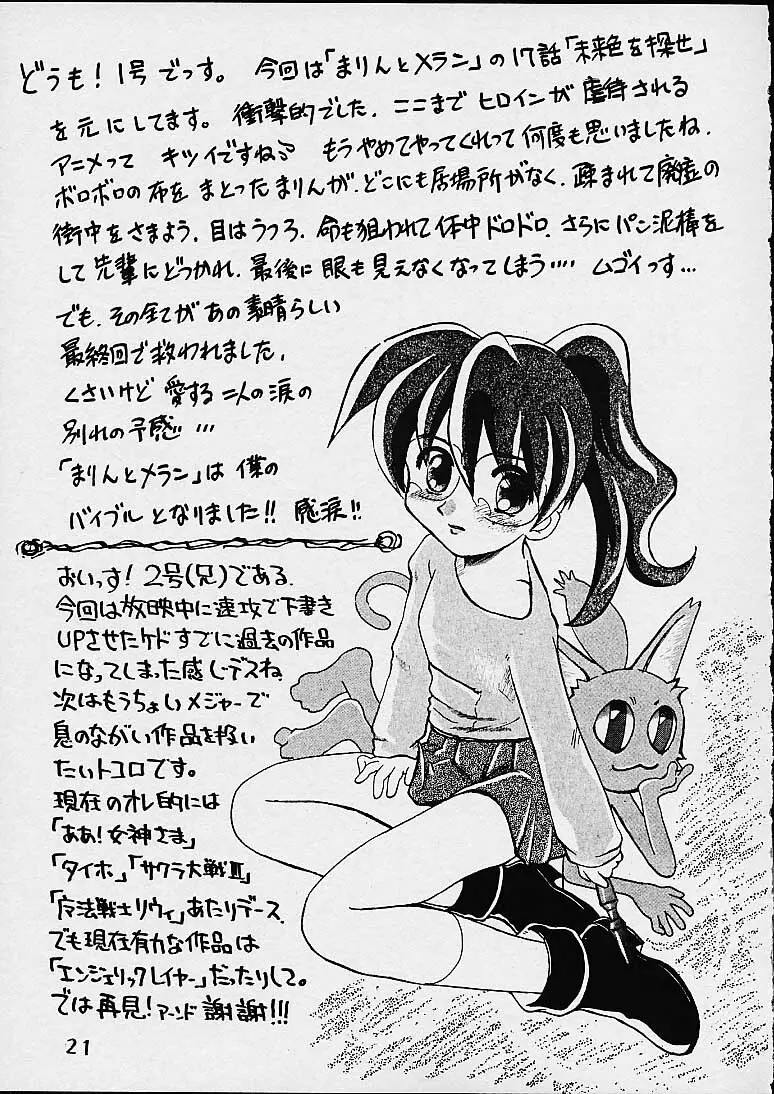 どうも！1号でっす。今回は「まりんとメラン」の17話「未来色を探せ」
を元にしてます。衝撃的でした．ここまでヒロインが虐待される
アニメってキツイですね〜 もうやめてやってくれって何度も思いましたね．
ボロボロの布をまとったまりんが．どこにも居場所がなく．疎まれて廃墟の
街中をさまよう．目はうつろ．命も狙われて体中ドロドロ．さらにパン泥棒を
して先輩にどつかれ．最後に眼も見えなくなってしまう‥‥ ムゴイっす…
でも．その全てがあの素晴らしい
最終回で救われました．
くさいけど愛する二人の涙の
別れの予感…
「まりんとメラン」は僕の
バイブルとなりました!! 感涙!!
おいっす！2号(兄)である．
今回は放映中に速攻で下書き
UPさせたケドすでに過去の作品
になってしまった感じデスね
次はもうちょいメジャーで
息のながい作品を扱い
たいトコロです。
現在のオレ的には
「ああ！女神さま」
「タイホ」「サクラ大戦III」
「魔法戦士リウイ」あたりデース．
でも現在有力な作品は
「エンジェリックレイヤー」だったりして。
では再見！アーンド謝謝!!!
21